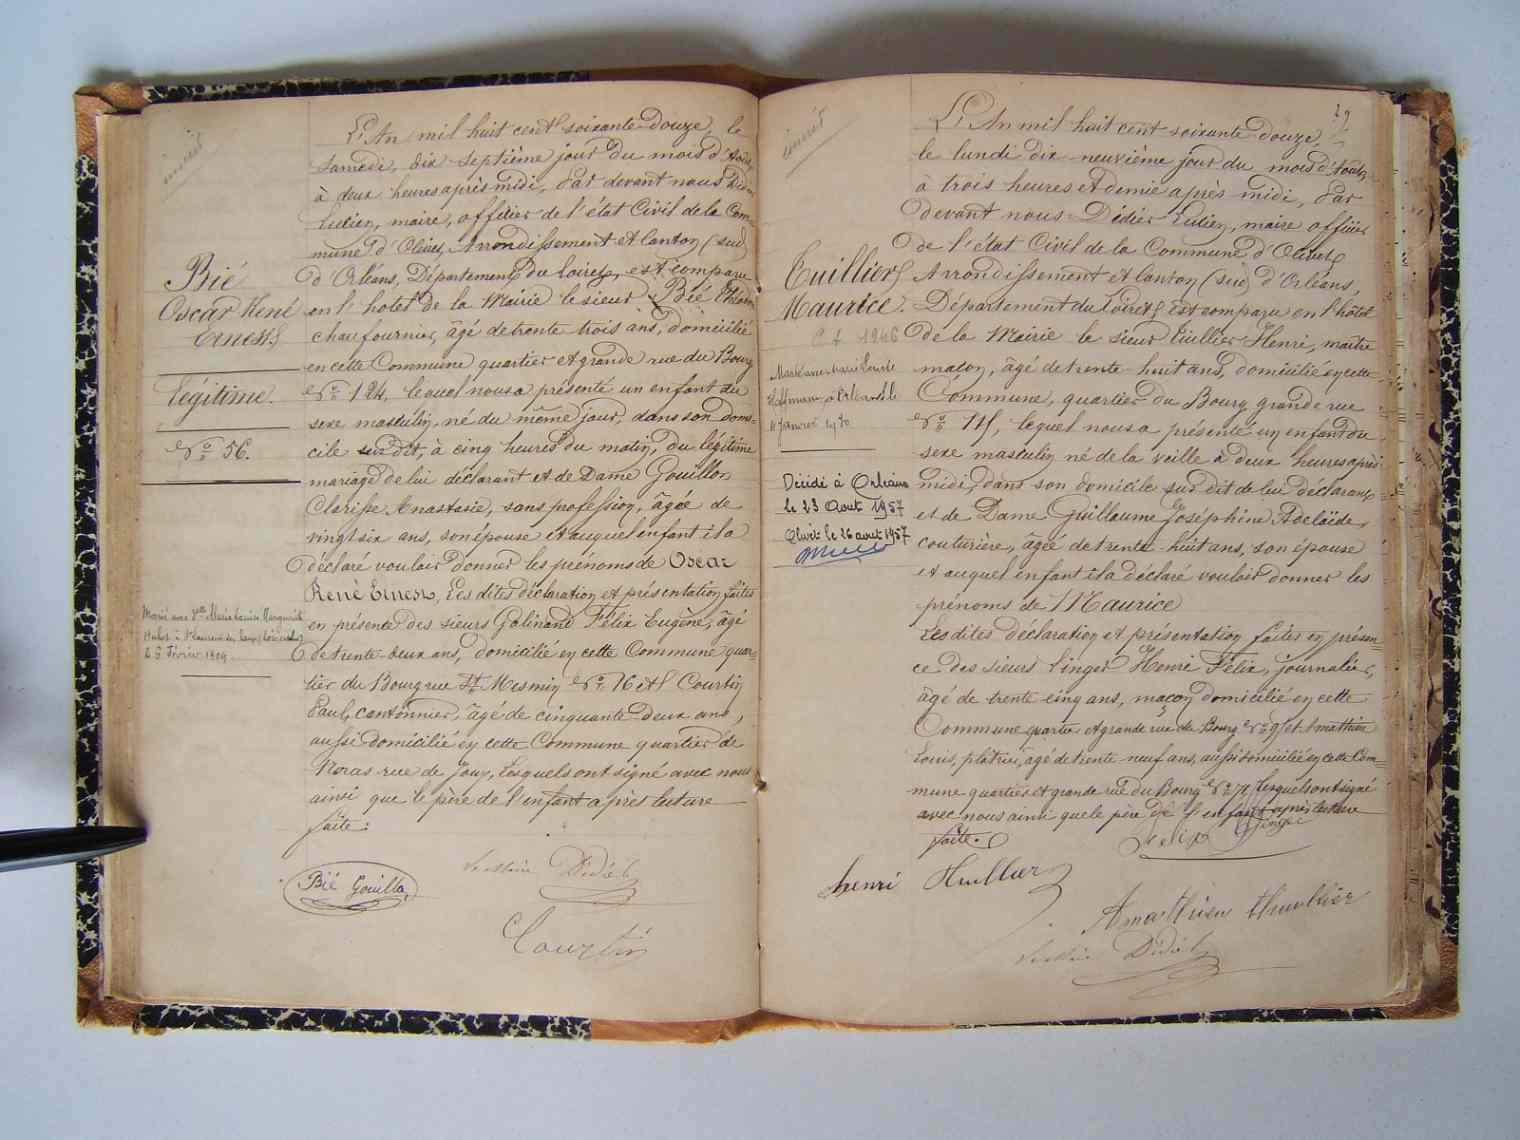 inscrit
Bié
Oscar René
Ernest
Légitime.
N° 56.
Marié avec
le 5 Février 1904
L'An mil huit cent soixante-douze, le
Samedi, dix-septième jour du mois d'Août,
à deux heures après midi, Par devant nous Didier
Lucien, maire, officier de l'état Civil de la Com-
mune d'Olivet, Arrondissement et Canton (sud)
d'Orléans, Département du Loiret, est comparu
en l'hotel de la Mairie le sieur Bié
chaufournier, âgé de trente trois ans, domicilié
en cette Commune quartier et grande rue du Bourg
N° 124, lequel nous a présenté un enfant du
sexe masculin, né du même jour, dans son domi-
cile sus dit, à cinq heures du matin, du légitime
mariage de lui déclarant et de Dame Gouillon
Clarisse Anastasie, sans profession, âgée de
vingt six ans, son épouse et auquel enfant il a
déclaré vouloir donner les prénoms de Oscar
René Ernest, Les dites déclaration et présentation faites
en présence des sieurs Galinand Félix Eugène, âgé
de trente-deux ans, domicilié en cette Commune quar-
tier du Bourg rue St Mesmin N° 16 et Courtin
Paul, cantonnier, âgé de cinquante deux ans,
aussi domicilié en cette Commune quartier de
Noras rue de Jouy, Lesquels ont signé avec nous
ainsi que le père de l'enfant après lecture
faite.
Bié Gouillon
Didier
Courtin
29
inscrit
Tuillier
Maurice.
C. I. 1946
Janvier
Décédé à Orléans
le 23 Août 1957
Olivet le 26 août 1957
L'An mil huit cent soixante-douze,
le lundi dix-neuvième jour du mois d'Août,
à trois heures et demie après midi, Par
devant nous Didier Lucien, maire officier
de l'état Civil de la Commune d'Olivet
Arrondissement et Canton (sud) d'Orléans,
Département du Loiret est comparu en l'hôtel
de la Mairie le sieur Tuillier Henri, maître
maçon, âgé de trente-huit ans, domicilié en cette
Commune, quartier du Bourg grande rue
N° lequel nous a présenté un enfant du
sexe masculin né de la veille à deux heures après
midi, dans son domicile sus dit de lui déclarant
et de Dame Guillaume Joséphine Adelaïde,
couturière, âgée de trente-huit ans, son épouse
et auquel enfant il a déclaré vouloir donner les
prénoms de Maurice
Les dites déclaration et présentation faites en présen-
ce des sieurs Singer Henri Félix, journalier,
âgé de trente cinq ans, maçon domicilié en cette
Commune quartier et grande rue du Bourg et Amathieu
Louis, plâtrier, âgé de trente neuf ans, aussi domicilié en cette Com-
mune quartier et grande rue du Bourg lesquels ont signé
avec nous ainsi que le père de l'enfant après lecture
faite.
Felix Singer
henri Thuillier
Amathieu
Didier